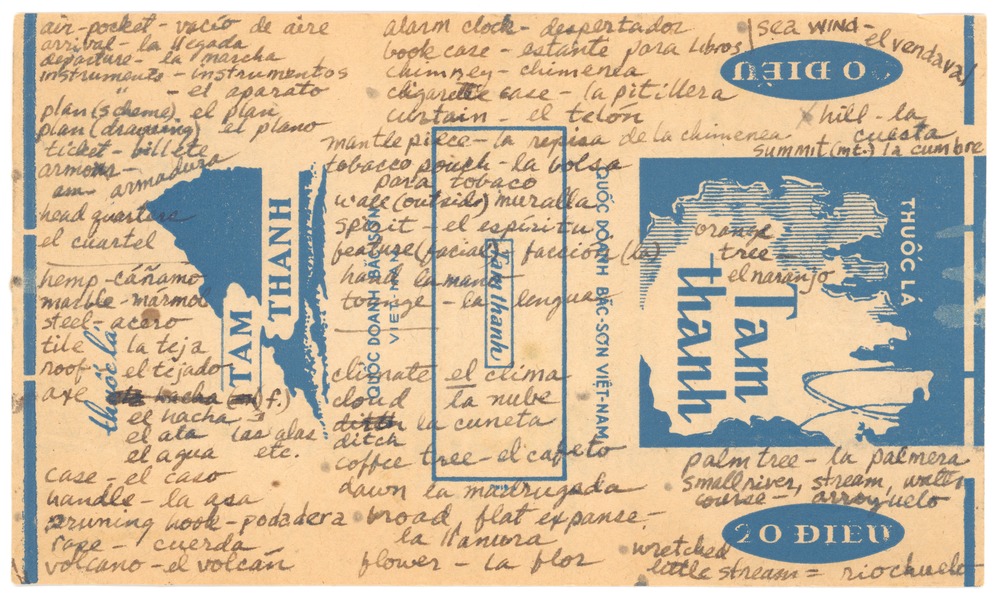 air-pocket - vacío de aire
arrival - la llegada
departure - la marcha
instruments - instrumentos
" - el aparato
plan (scheme) el plan
plan (drawing) el plano
ticket - billete
armons -
am armadura
headquarters
el cuartel
hemp - cáñamo
marble - marmol
steel - acero
tile la teja
roof - el tejado
axe hacha (f.)
el hacha
el ala las alas
el agua etc.
case - el caso
handle - la asa
pruning hook - podadera
rope - cuerda
volcano - el volcán
alarm clock - despertador
bookcase - estante para libros
chimney - chimenea
cigarette case - la pitillera
curtain - el telón
mantlepiece - la repisa de la chimenea
tobacco pouch - la bolsa
para tobaco
wall (outside) muralla
spirit - el espíritu
feature (facial) facción (la)
hand la mano
tounge - la lengua
climate el clima
cloud la nube
ditch la cuneta
ditch
coffee tree - el cafeto
dawn la madrugada
broad, flat expanse -
la llanura
flower - la flor
sea wind -
el vendaval
x hill - la
cuesta
summit (mt.) la cumbre
orange
tree -
el naranjo
palm tree - la palmera
small river, stream, water
course - arroyuelo
wretched
little stream = riochuelo
20 ĐIẾU
20 ĐIẾU
THUỐC LÁ
Tam
thanh
QUỐC DOANH BẮC-SƠN VIỆT-NAM
Tam thanh
QUỐC DOANH BẮC-SƠN
VIỆT-NAM
TAM
THANH
thuốc lá